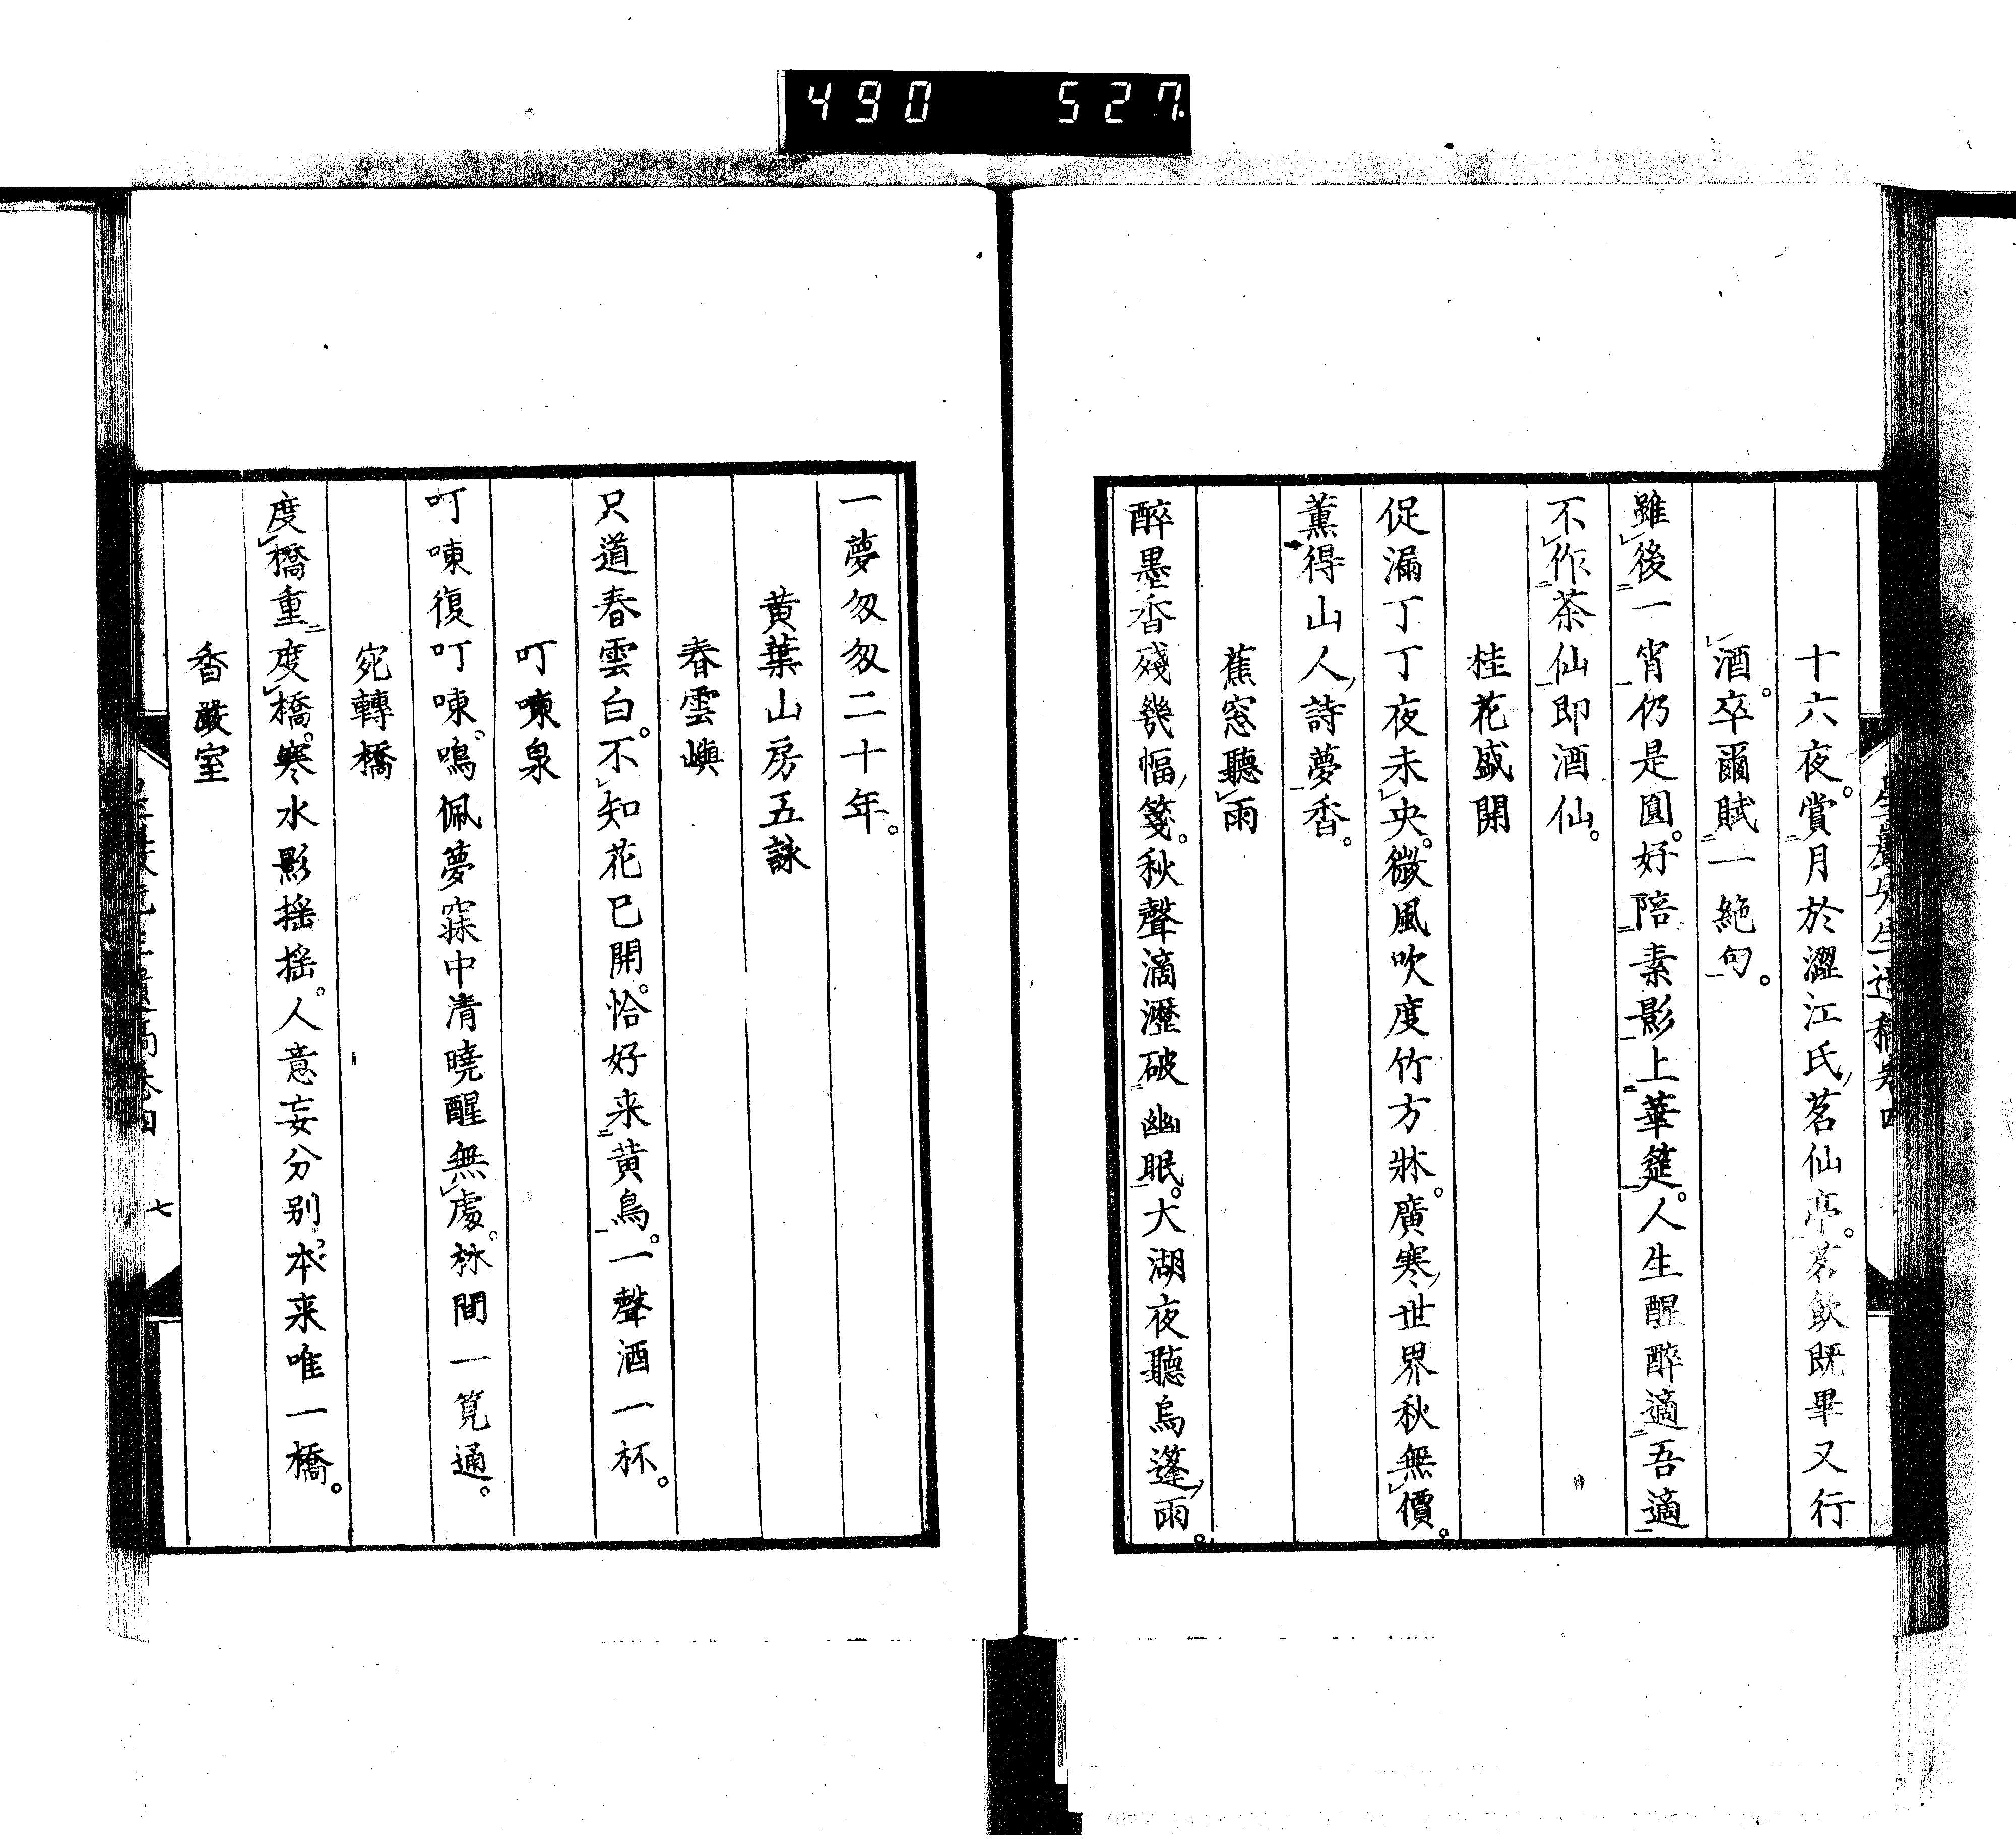 490 527
十六夜。賞月於澀江氏茗仙亭。茗飲既畢又行
酒。卒爾賦一絶句。
雖後一宵仍是圓。好陪素影上華筵。人生醒醉適吾適
不作茶仙即酒仙。
桂花盛開
促漏丁丁夜未央。微風吹度竹方牀。廣寒世界秋無價。
薫得山人詩夢香。
蕉窓聽雨
醉墨香殘幾幅箋。秋聲滴瀝破幽眠。大湖夜聽烏篷雨。
一夢匆匆二十年。
黄葉山房五詠
春雲嶼
只道春雲白。不知花已開。恰好来黄鳥。一聲酒一杯。
叮㖦泉
叮㖦復叮㖦。鳴佩夢寐中清曉醒無處。林間一筧通。
宛轉橋
度橋重度橋。寒水影搖搖。人意妄分別。本来唯一橋。
香嚴室
七